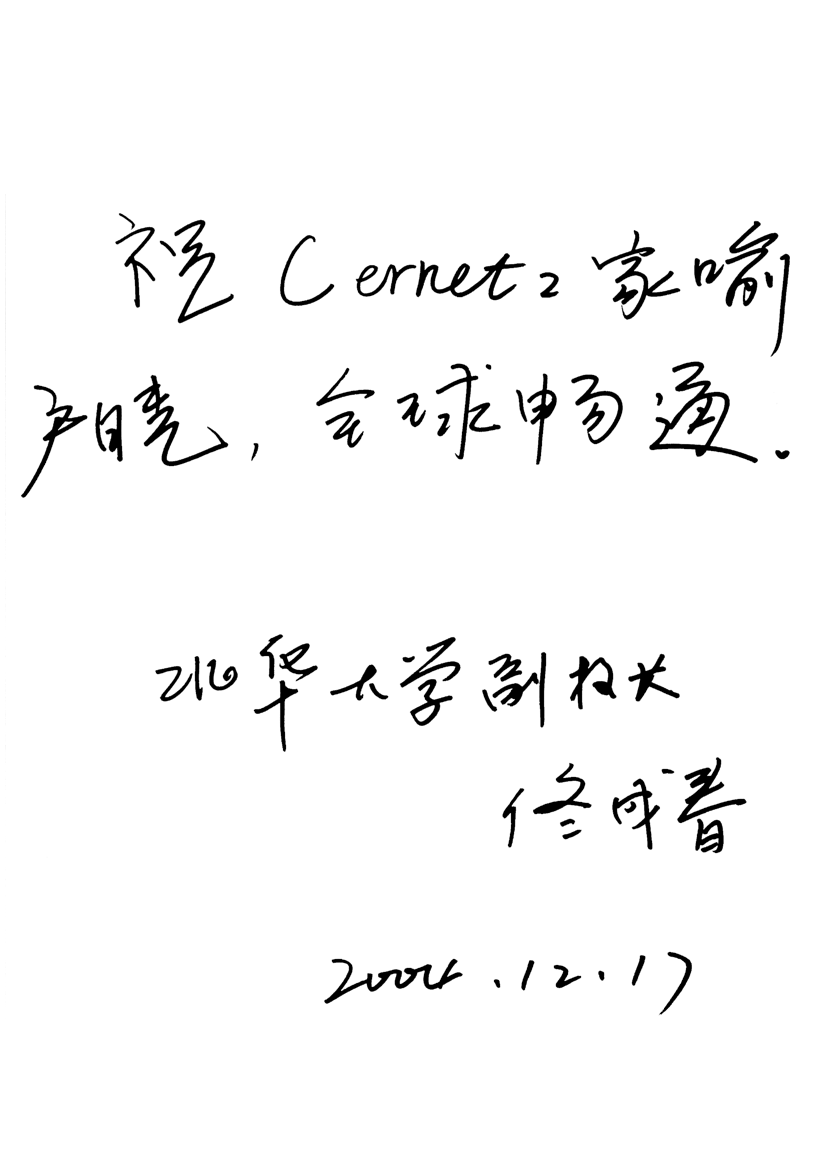 祝 Cernet2 家喻
户晓,全球畅通.
北华大学副校长
佟成春
2004.12.17